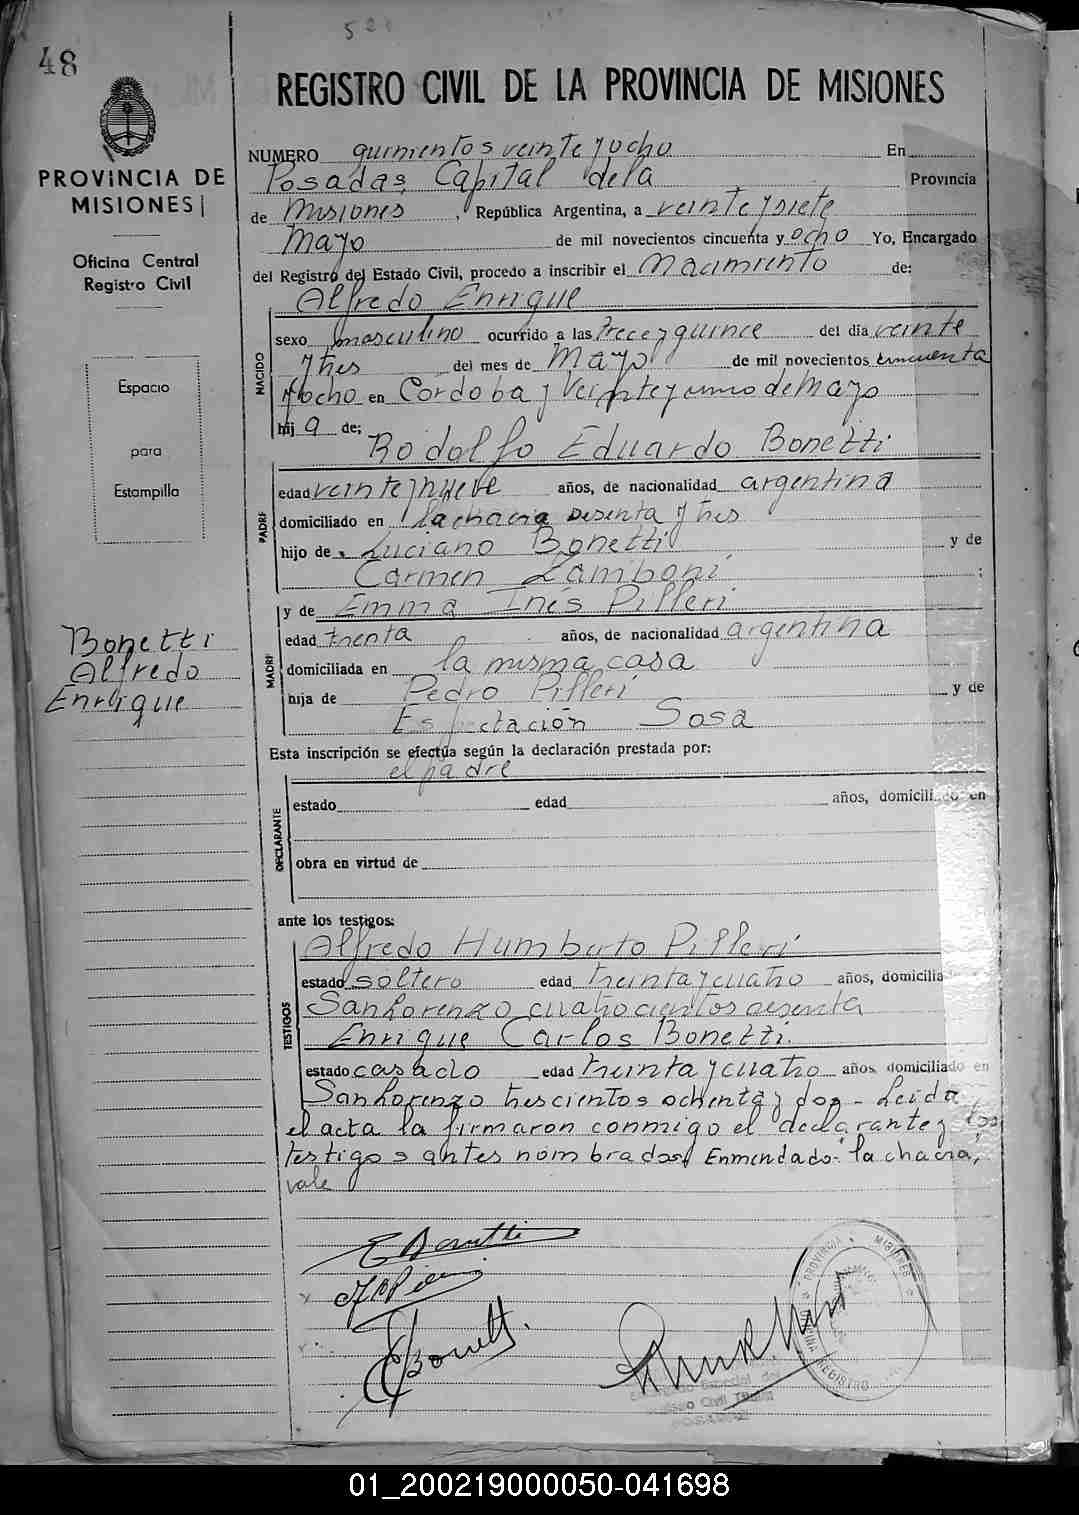 48
REGISTRO CIVIL DE LA PROVINCIA DE MISIONES
PROVINCIA DE
MISIONES
Oficina Central
Registro Civil
Espacio
para
Estampilla
Bonetti
Alfredo
Enrique
NUMERO quinientos veinte y ocho En
Posadas, Capital de la Provincia
de Misiones, República Argentina, a veinte y siete
Mayo de mil novecientos cincuenta y ocho Yo, Encargado
del Registro del Estado Civil, procedo a inscribir el Nacimiento de:
Alfredo Enrique
NACIDO
sexo masculino ocurrido a las trece y quince del día veinte
y tres del mes de Mayo de mil novecientos cincuenta
y ocho en Cordoba y Veinte y uno de Mayo
hij a de:
Rodolfo Eduardo Bonetti
PADRE
edad veinte y nueve años, de nacionalidad argentina
domiciliado en la chacra sesenta y tres
hijo de Luciano Bonetti y de
Carmen Zamboni ;
y de Emma Inés Pilleri
MADRE
edad treinta años, de nacionalidad argentina
domiciliada en la misma casa
hija de Pedro Pilleri y de
Espectación Sosa
Esta inscripción se efectúa según la declaración prestada por:
el padre
DECLARANTE
estado edad años, domiciliado en
obra en virtud de
ante los testigos:
Alfredo Humberto Pilleri
TESTIGOS
estado soltero edad treinta y cuatro años, domicilia
San Lorenzo cuatrocientos sesenta
Enrique Carlos Bonetti.
estado casado edad treinta y cuatro años domiciliado en
San Lorenzo trescientos ochenta y dos - Leida
el acta la firmaron conmigo el declarante y los
testigos antes nombrados. Enmendado: "la chacra",
vale
E Bonetti
PROVINCIA MISIONES
OFICINA REGISTRO
01_200219000050-041698